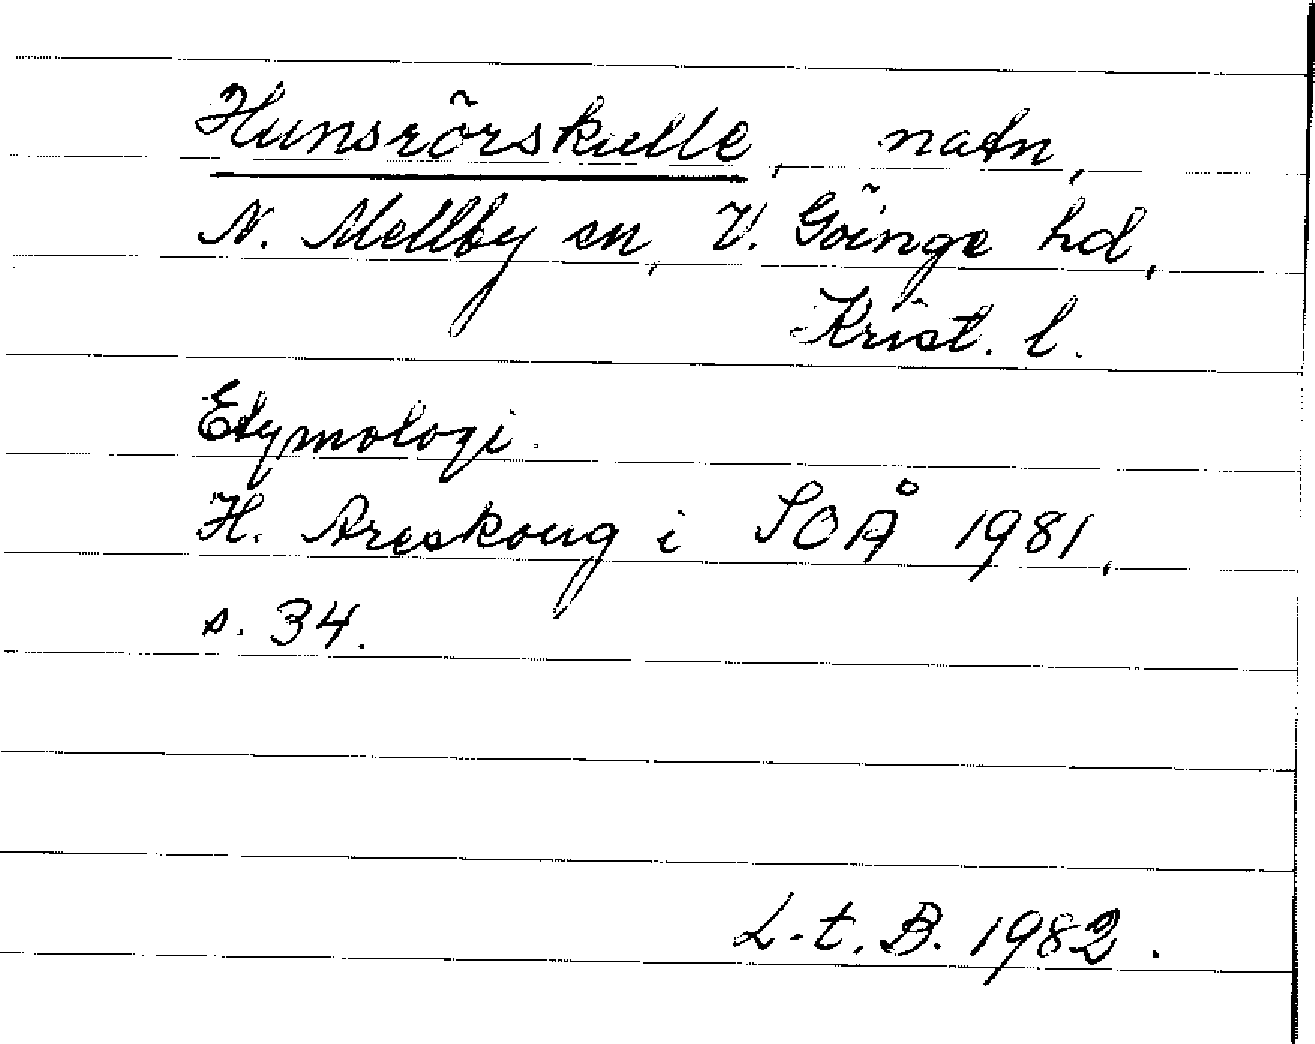 Hunsrörskulle, natn,
N. Mellby sn, V. Göinge hd,
Krist. l.
Etymologi.
H. Areskoug i SOÅ 1981,
s. 34.
L.t.B. 1982.